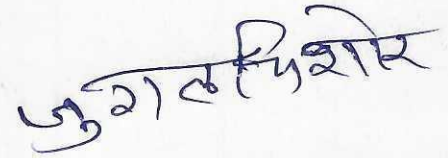 जुगलकिशोर